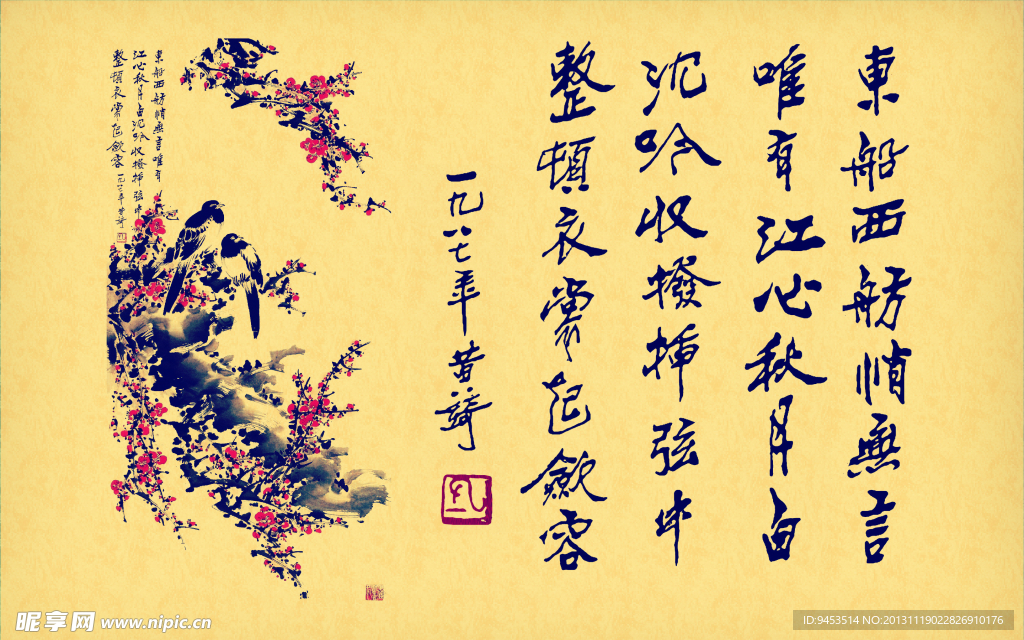 東船西舫悄無言
唯有江心秋月白
沈吟收撥插弦中
整頓衣裳起斂容
一九八七年
東船西舫悄無言唯有
江心秋月白沈吟收撥插弦中
整頓衣裳起斂容一九八七年
昵享网 www.nipic.cn
ID:9453514 NO:20131119022826910176